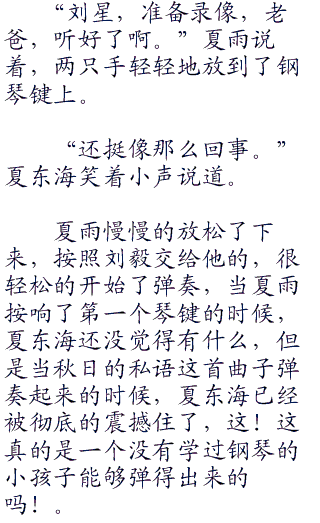 “刘星，准备录像，老
爸，听好了啊。”夏雨说
着，两只手轻轻地放到了钢
琴键上。
“还挺像那么回事。”
夏东海笑着小声说道。
夏雨慢慢的放松了下
来，按照刘毅交给他的，很
轻松的开始了弹奏，当夏雨
按响了第一个琴键的时候，
夏东海还没觉得有什么，但
是当秋日的私语这首曲子弹
奏起来的时候，夏东海已经
被彻底的震撼住了，这！这
真的是一个没有学过钢琴的
小孩子能够弹得出来的
吗！。